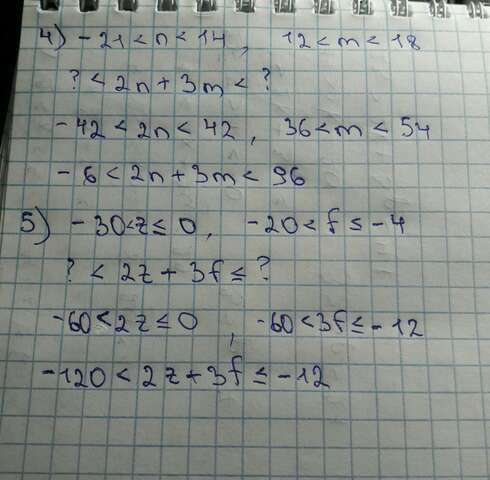 4) -21 < n < 14, 12 < m < 18
? < 2n + 3m < ?
-42 < 2n < 42, 36 < m < 54
-6 < 2n + 3m < 96
5) -30 < z ≤ 0, -20 < f ≤ -4
? < 2z + 3f ≤ ?
-60 < 2z ≤ 0, -60 < 3f ≤ -12
-120 < 2z + 3f ≤ -12